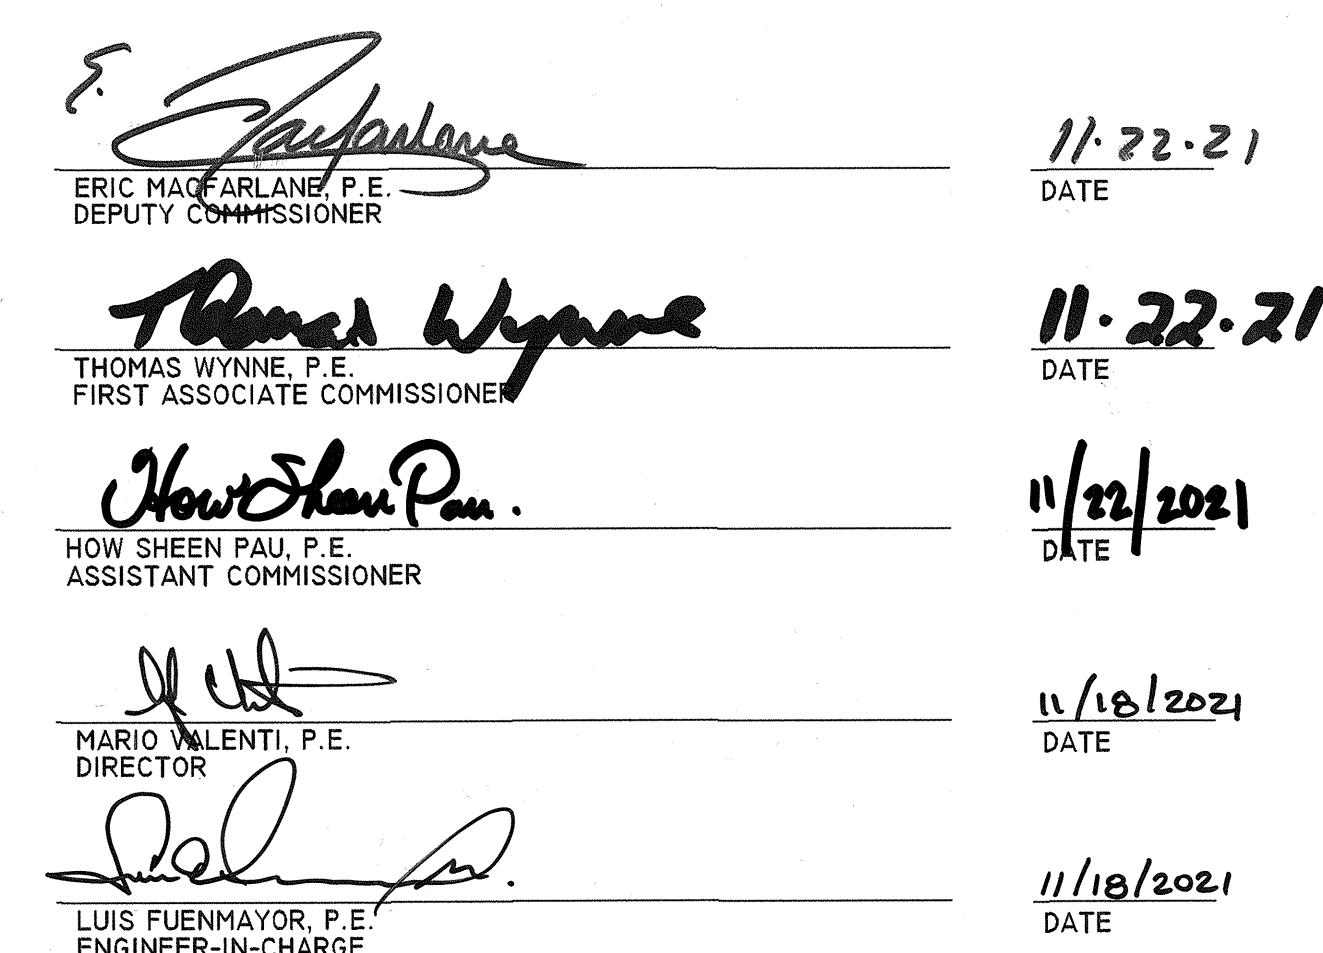 E. Macfarlane 11·22·21
ERIC MACFARLANE, P.E. DATE
DEPUTY COMMISSIONER
Thomas Wynne 11·22·21
THOMAS WYNNE, P.E. DATE
FIRST ASSOCIATE COMMISSIONER
How Sheen Pau. 11/22/2021
HOW SHEEN PAU, P.E. DATE
ASSISTANT COMMISSIONER
11/18/2021
MARIO VALENTI, P.E. DATE
DIRECTOR
11/18/2021
LUIS FUENMAYOR, P.E. DATE
ENGINEER-IN-CHARGE